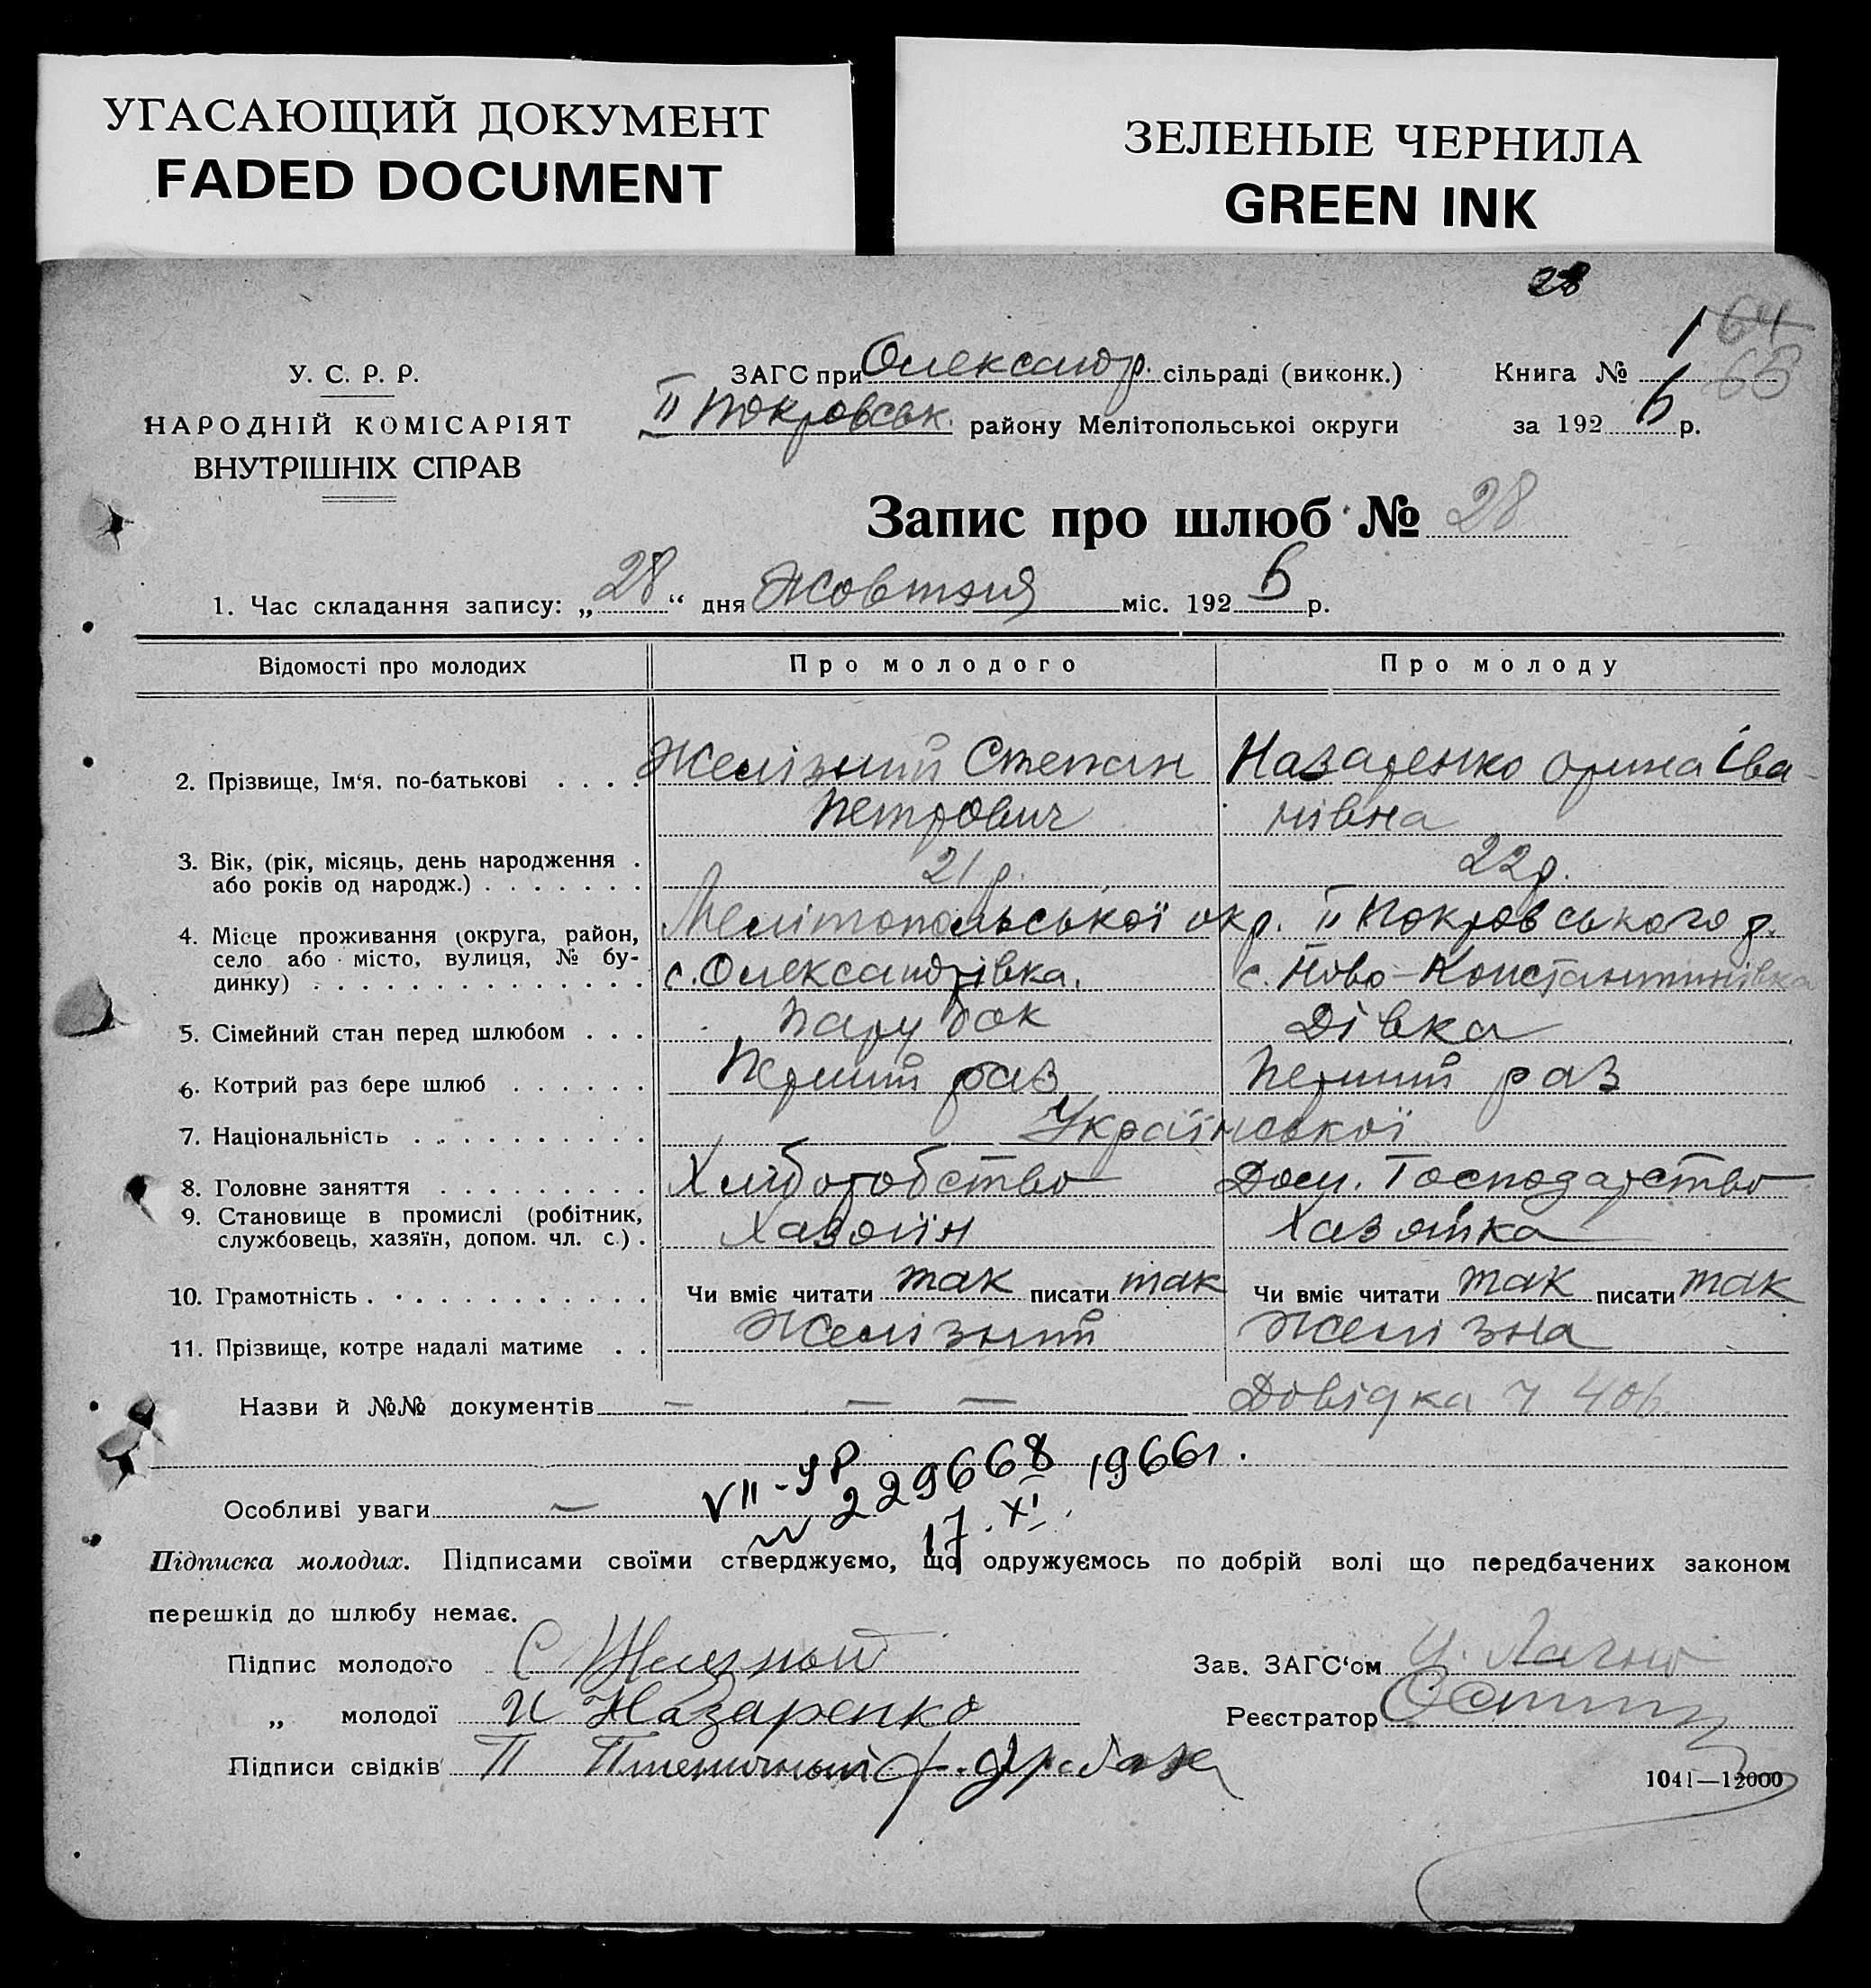 УГАСАЮЩИЙ ДОКУМЕНТ
FADED DOCUMENT
ЗЕЛЕНЫЕ ЧЕРНИЛА
GREEN INK
28
64
65
У. С. Р. Р.
НАРОДНІЙ КОМІСАРІЯТ
ВНУТРІШНІХ СПРАВ
ЗАГС при Олександр. сільраді (виконк.)
II Покровськ. району Мелітопольської округи
Книга № 1
за 192 6 р.
Запис про шлюб № 28
1. Час складання запису: „ 28 “ дня Жовтня міс. 192 6 р.
Відомості про молодих Про молодого Про молоду
2. Прізвище, Ім‘я. по-батькові . . . . Желізний Степан Назаренко Орина Іва-
Петрович нівна
3. Вік, (рік, місяць, день народження .
або років од народж.) . . . . . . . 21 р. 22 р.
4. Місце проживання (округа, район, Мелітопольської окр. II Покровського р.
село або місто, вулиця, № бу-
динку) . . . . . . . . . . . . . . с. Олександрівка. с. Ново-Константинівка
5. Сімейний стан перед шлюбом . . . Парубок Дівка
6. Котрий раз бере шлюб . . . . . . Перший раз Перший раз
7. Національність . . . . . . . . . . Української
8. Головне заняття . . . . . . . . . Хліборобство Дом. Господарство
9. Становище в промислі (робітник,
службовець, хазяїн, допом. чл. с.) . Хазяїн Хазяйка
10. Грамотність . . . . . . . . . . . . Чи вміє читати так писати так Чи вміє читати так писати так
11. Прізвище, котре надалі матиме . . Желізний Желізна
Назви й №№ документів — — — Довідка ч 406
VII-УР 229668 1966г.
Особливі уваги —
17. XI.
Підписка молодих. Підписами своїми стверджуємо, що одружуємось по добрій волі що передбачених законом
перешкід до шлюбу немає.
Підпис молодого С
Зав. ЗАГС‘ом
„ молодої И Назаренко
Реєстратор
Підписи свідків П Пшеничный
1041—12000